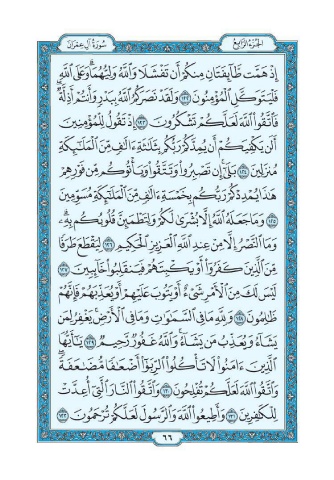 سُورَةُ آلِ عِمْرَانَ الجُزْءُ الرَّابِعُ
إِذْ هَمَّت طَّآئِفَتَانِ مِنكُمْ أَن تَفْشَلَا وَٱللَّهُ وَلِيُّهُمَا ۗ وَعَلَى ٱللَّهِ
فَلْيَتَوَكَّلِ ٱلْمُؤْمِنُونَ ١٢٢ وَلَقَدْ نَصَرَكُمُ ٱللَّهُ بِبَدْرٍ وَأَنتُمْ أَذِلَّةٌ ۖ
فَٱتَّقُوا۟ ٱللَّهَ لَعَلَّكُمْ تَشْكُرُونَ ١٢٣ إِذْ تَقُولُ لِلْمُؤْمِنِينَ
أَلَن يَكْفِيَكُمْ أَن يُمِدَّكُمْ رَبُّكُم بِثَلَٰثَةِ ءَالَٰفٍ مِّنَ ٱلْمَلَٰٓئِكَةِ
مُنزَلِينَ ١٢٤ بَلَىٰٓ ۚ إِن تَصْبِرُوا۟ وَتَتَّقُوا۟ وَيَأْتُوكُم مِّن فَوْرِهِمْ
هَٰذَا يُمْدِدْكُمْ رَبُّكُم بِخَمْسَةِ ءَالَٰفٍ مِّنَ ٱلْمَلَٰٓئِكَةِ مُسَوِّمِينَ
١٢٥ وَمَا جَعَلَهُ ٱللَّهُ إِلَّا بُشْرَىٰ لَكُمْ وَلِتَطْمَئِنَّ قُلُوبُكُم بِهِۦ ۗ
وَمَا ٱلنَّصْرُ إِلَّا مِنْ عِندِ ٱللَّهِ ٱلْعَزِيزِ ٱلْحَكِيمِ ١٢٦ لِيَقْطَعَ طَرَفًا
مِّنَ ٱلَّذِينَ كَفَرُوٓا۟ أَوْ يَكْبِتَهُمْ فَيَنقَلِبُوا۟ خَآئِبِينَ ١٢٧
لَيْسَ لَكَ مِنَ ٱلْأَمْرِ شَىْءٌ أَوْ يَتُوبَ عَلَيْهِمْ أَوْ يُعَذِّبَهُمْ فَإِنَّهُمْ
ظَٰلِمُونَ ١٢٨ وَلِلَّهِ مَا فِى ٱلسَّمَٰوَٰتِ وَمَا فِى ٱلْأَرْضِ ۚ يَغْفِرُ لِمَن
يَشَآءُ وَيُعَذِّبُ مَن يَشَآءُ ۚ وَٱللَّهُ غَفُورٌ رَّحِيمٌ ١٢٩ يَٰٓأَيُّهَا
ٱلَّذِينَ ءَامَنُوا۟ لَا تَأْكُلُوا۟ ٱلرِّبَوٰٓا۟ أَضْعَٰفًا مُّضَٰعَفَةً ۖ
وَٱتَّقُوا۟ ٱللَّهَ لَعَلَّكُمْ تُفْلِحُونَ ١٣٠ وَٱتَّقُوا۟ ٱلنَّارَ ٱلَّتِىٓ أُعِدَّتْ
لِلْكَٰفِرِينَ ١٣١ وَأَطِيعُوا۟ ٱللَّهَ وَٱلرَّسُولَ لَعَلَّكُمْ تُرْحَمُونَ ١٣٢
٦٦